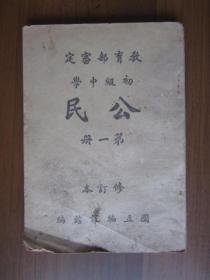 定審部育教
學中級初
民公
冊一第
本訂修
編館譯編立國